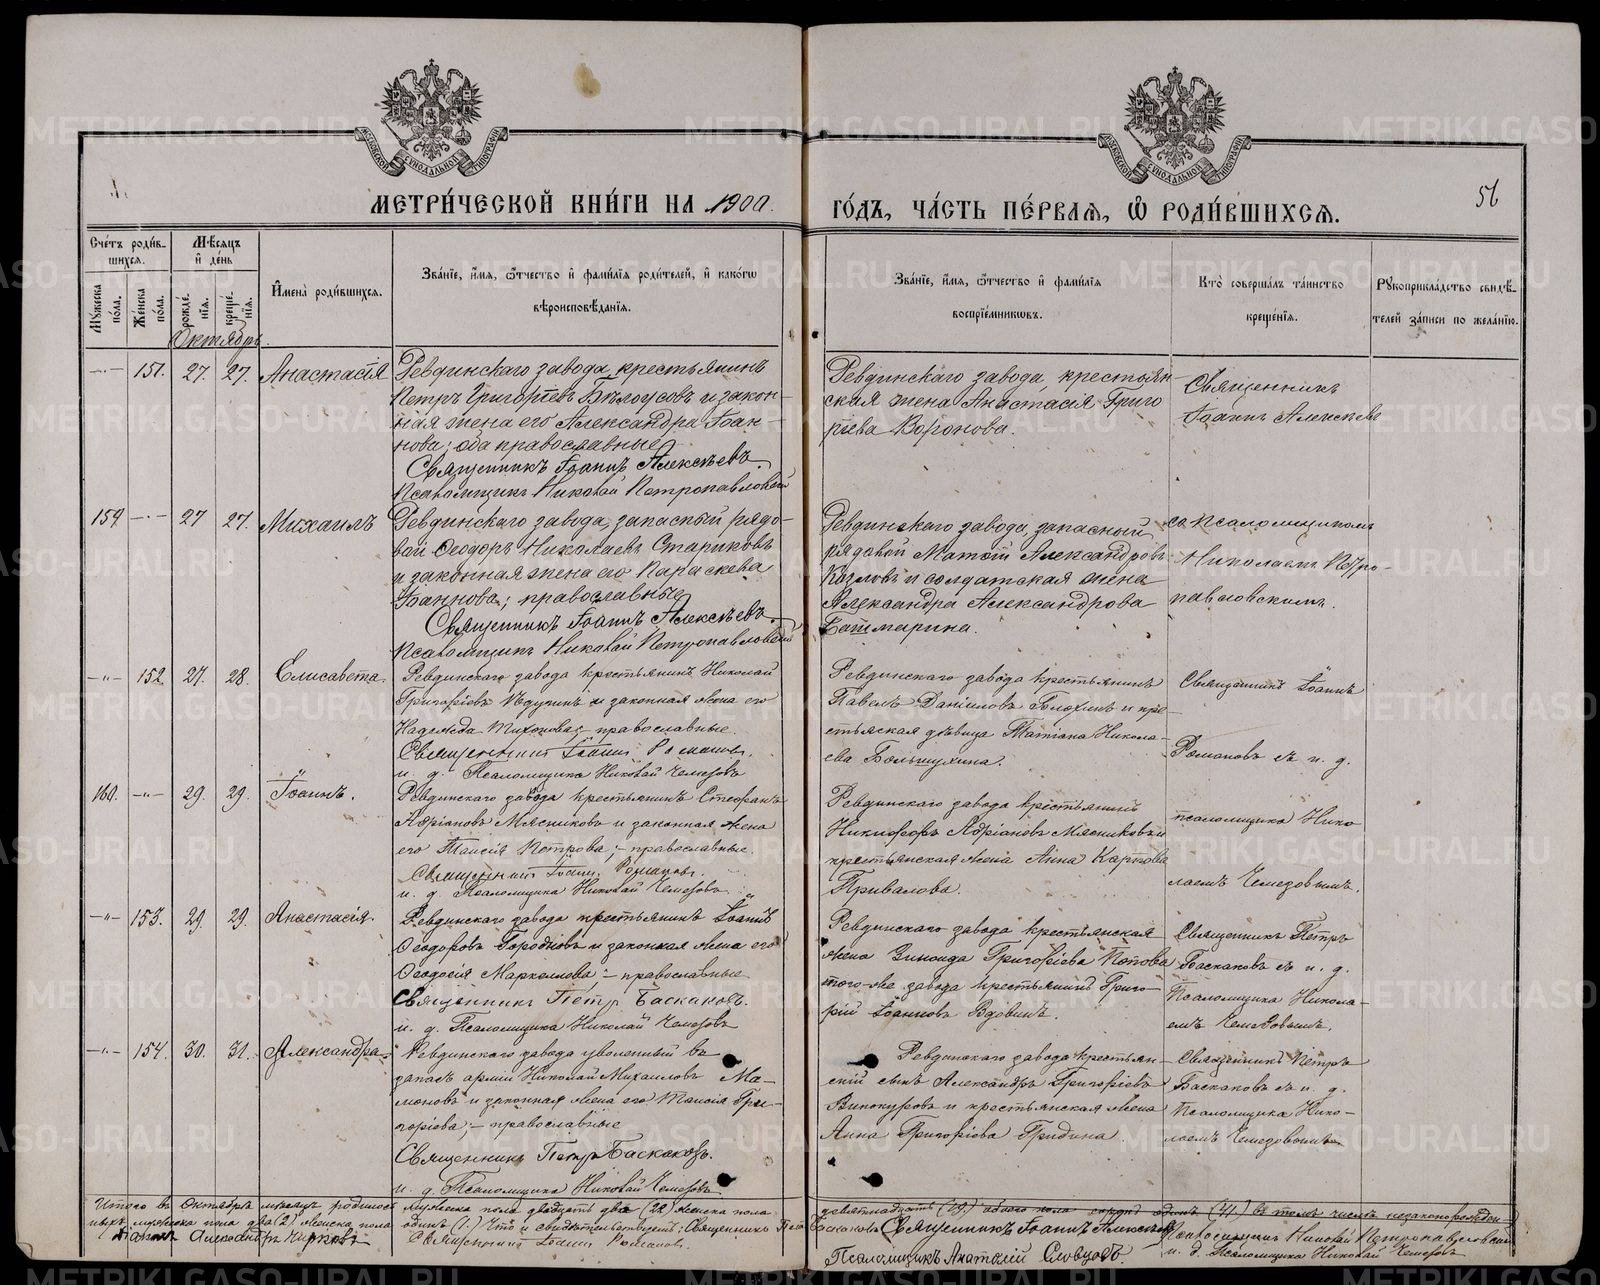 МЕТРИ́ЧЕСКОЙ КНИ́ГИ НА 1900
ГО́ДЪ, ЧА́СТЬ ПЕ́РВАѦ, Ѽ РОДИ́ВШИХСѦ.
56
Сче́тъ роди́в-
шихся.
Мѣ́сяцъ
и҆ де́нь
Мꙋ́жеска по́ла.
Же́нска по́ла.
рожде́нїя.
креще́нїя.
И҆мена̀ роди́вшихся.
Зва́нїе, и҆́мя, ѻ҆́тчество и҆ фами́лїя роди́телей, и҆ како́гѡ
вѣроисповѣ́данїя.
Зва́нїе, и҆́мя, ѻ҆́тчество и҆ фами́лїя
воспрїе́мникѡвъ.
Кто̀ соверша́лъ та́инство
креще́нїя.
Рꙋкоприкла́дство свидѣ́-
телей за́писи по жела́нїю.
Октябрь.
151. 27. 27. Анастасія
Ревдинскаго завода, крестьянинъ
Петръ Григорьевъ Бѣлоусовъ и закон-
ная жена его Александра Іоан-
нова; оба православные
Священникъ Іоаннъ Алексѣевъ.
Псаломщикъ Николай Петропавловскій
Ревдинскаго завода, крестьян-
ская жена Анастасія Григо
рьева Воронова.
Священникъ
Іоаннъ Алексѣевъ
159 27 27. Михаилъ
Ревдинскаго завода, запасный рядо-
вой Ѳеодоръ Николаевъ Стариковъ
и законная жена его Параскева
Іоаннова; православные
Священникъ Іоаннъ Алексѣевъ.
Псаломщикъ Николай Петропавловскій
Ревдинскаго завода запасный
рядовой Александровъ
Козловъ и солдатская жена
Александра Александрова
Батмарина.
съ псаломщикомъ
Николаемъ Петро-
павловскимъ.
152 27. 28. Елисавета.
Ревдинскаго завода крестьянинъ Николай
Григорьевъ и законная жена его
Надежда Тихонова; православные.
Священникъ Іоаннъ Романовъ.
и. д. Псаломщика Николай Чемезовъ
Ревдинскаго завода крестьянинъ
Павелъ Даніиловъ и кре-
стьянская дѣвица Татіана Никола-
ева Большухина.
Священникъ Іоаннъ
Романовъ съ и. д.
160. 29. 29. Іоаннъ.
Ревдинскаго завода крестьянинъ Стефанъ
Адріановъ Мясниковъ и законная жена
его Таисія Петрова; – православные.
Священникъ Іоаннъ Романовъ.
и. д. Псаломщика Николай Чемезовъ
Ревдинскаго завода крестьянинъ
Никифоръ Адріановъ Мясниковъ и
крестьянская жена Анна Карпова
Привалова.
псаломщика Нико
лаемъ Чемезовымъ.
153. 29. 29. Анастасія.
Ревдинскаго завода крестьянинъ Іоаннъ
Ѳеодоровъ и законная жена его
Ѳеодосія Маркеллова: – православные
Священникъ Петръ Баскаковъ.
и. д. Псаломщика Николай Чемезовъ
Ревдинскаго завода крестьянская
жена Зиноида Григорьева Попова
того-же завода крестьянинъ Григо-
рій Іоанновъ Вдовинъ.
Священникъ Петръ
Баскаковъ съ и. д.
Псаломщика Никола-
емъ Чемезовымъ.
154. 30. 31. Александра.
Ревдинскаго завода уволенный въ
запасъ арміи Николай Михайловъ Ма-
моновъ и законная жена его Таисія Гри-
горьева; – православные
Священникъ Петръ Баскаковъ.
и. д. Псаломщика Николай Чемезовъ
Ревдинскаго завода крестьян-
скій сынъ Александръ Григорьевъ
Винокуровъ и крестьянская жена
Анна Григорьева Гридина.
Священникъ Петръ
Баскаковъ съ и. д.
Псаломщика Нико-
лаемъ Чемезовымъ
Итого въ Октябрѣ мѣсяцѣ родилось мужеска пола двадцать два (22) женска пола девятнадцать (19) обоего пола сорокъ одинъ (41) въ томъ числѣ незаконорожден-
ныхъ мужеска пола два (2) женска пола одинъ (1.) Священникъ Петръ Баскаковъ Священникъ Іоаннъ Алексѣевъ Псаломщикъ Николай Петропавловскій
Діаконъ Александръ Чирковъ Священникъ Іоаннъ Романовъ. Псаломщикъ Анатолій Словцовъ. и. д. Псаломщика Николай Чемезовъ
METRIKI.GASO-URAL.RU